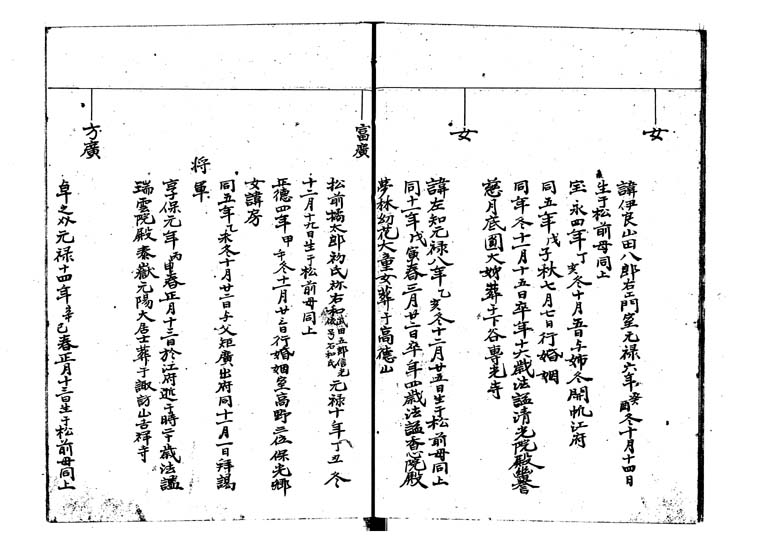 女
諱伊良山田八郎右衛門室元禄六年癸酉冬十月十四日
生于松前母同上
宝永四年丁亥冬十月五日与姉冬開帆江府
同五年戊子秋七月七日行婚姻
同年冬十一月十五日卒年十六歳法謚清光院殿
慈月底圓大姉葬于下谷専光寺
女
諱左知元禄八年乙亥冬十二月廿五日生于松前母同上
同十一年戊寅春三月廿二日卒年四歳法謚香心院殿
夢林幼花大童女葬于高徳山
富廣
松前橘太郎初氏称右和武田五郎信光元禄十年丁丑冬
十二月十九日生于松前母同上
正徳四年甲午冬十一月廿三日行婚姻室高野三位保光卿
女諱房
同五年乙未冬十月廿二日与父矩廣出府同十一月一日拝謁
将軍
享保元年丙申春正月十三日於江府逝于時二十歳法謚
瑞雲院殿泰嶽元陽大居士葬于諏訪山吉祥寺
方廣
卓之丞元禄十四年辛巳春正月十三日生于松前母同上